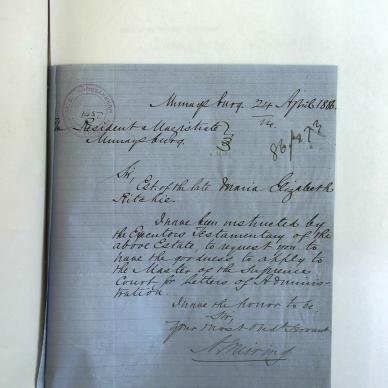 Murraysburg. 24 April 1886.
The Resident Magistrate
Murraysburg.
Sir,
Est. of the late Maria Elizabeth
Ritchie.
I have been instructed by
the Executors Testamentary of the
above Estate, to request you to
have the goodness to apply to
the Master of the Supreme
Court for Letters of Adminis-
tration
I have the honor to be
Sir,
your most obdt Servant